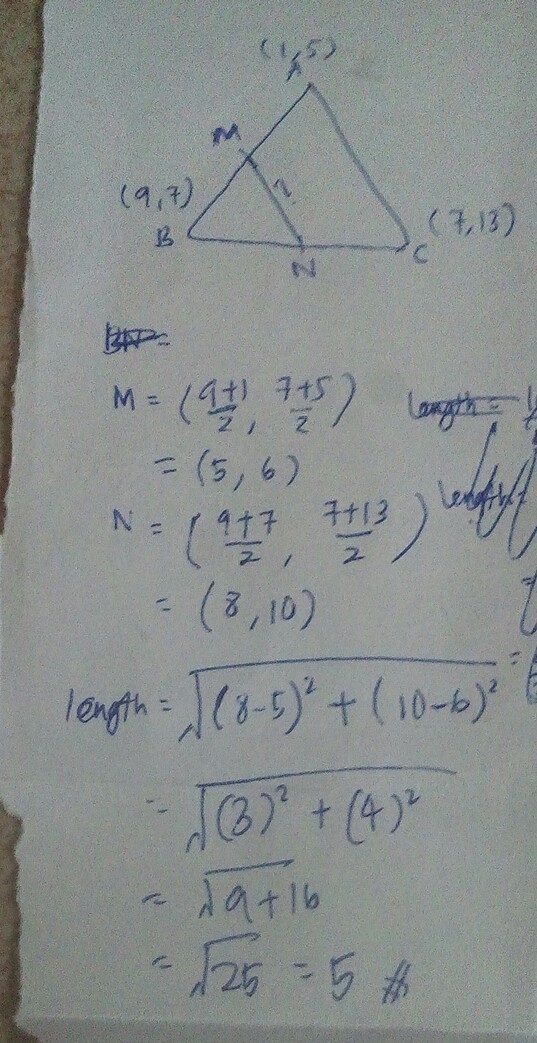 (1, 5)
A
M
?
(9,7)
B
N
C
(7,13)
M = (9+1/2, 7+5/2)
= (5, 6)
N = (9+7/2, 7+13/2)
= (8,10)
length = √(8-5)² + (10-6)²
= √(3)² + (4)²
= √9+16
= √25 = 5 #
length =
length =